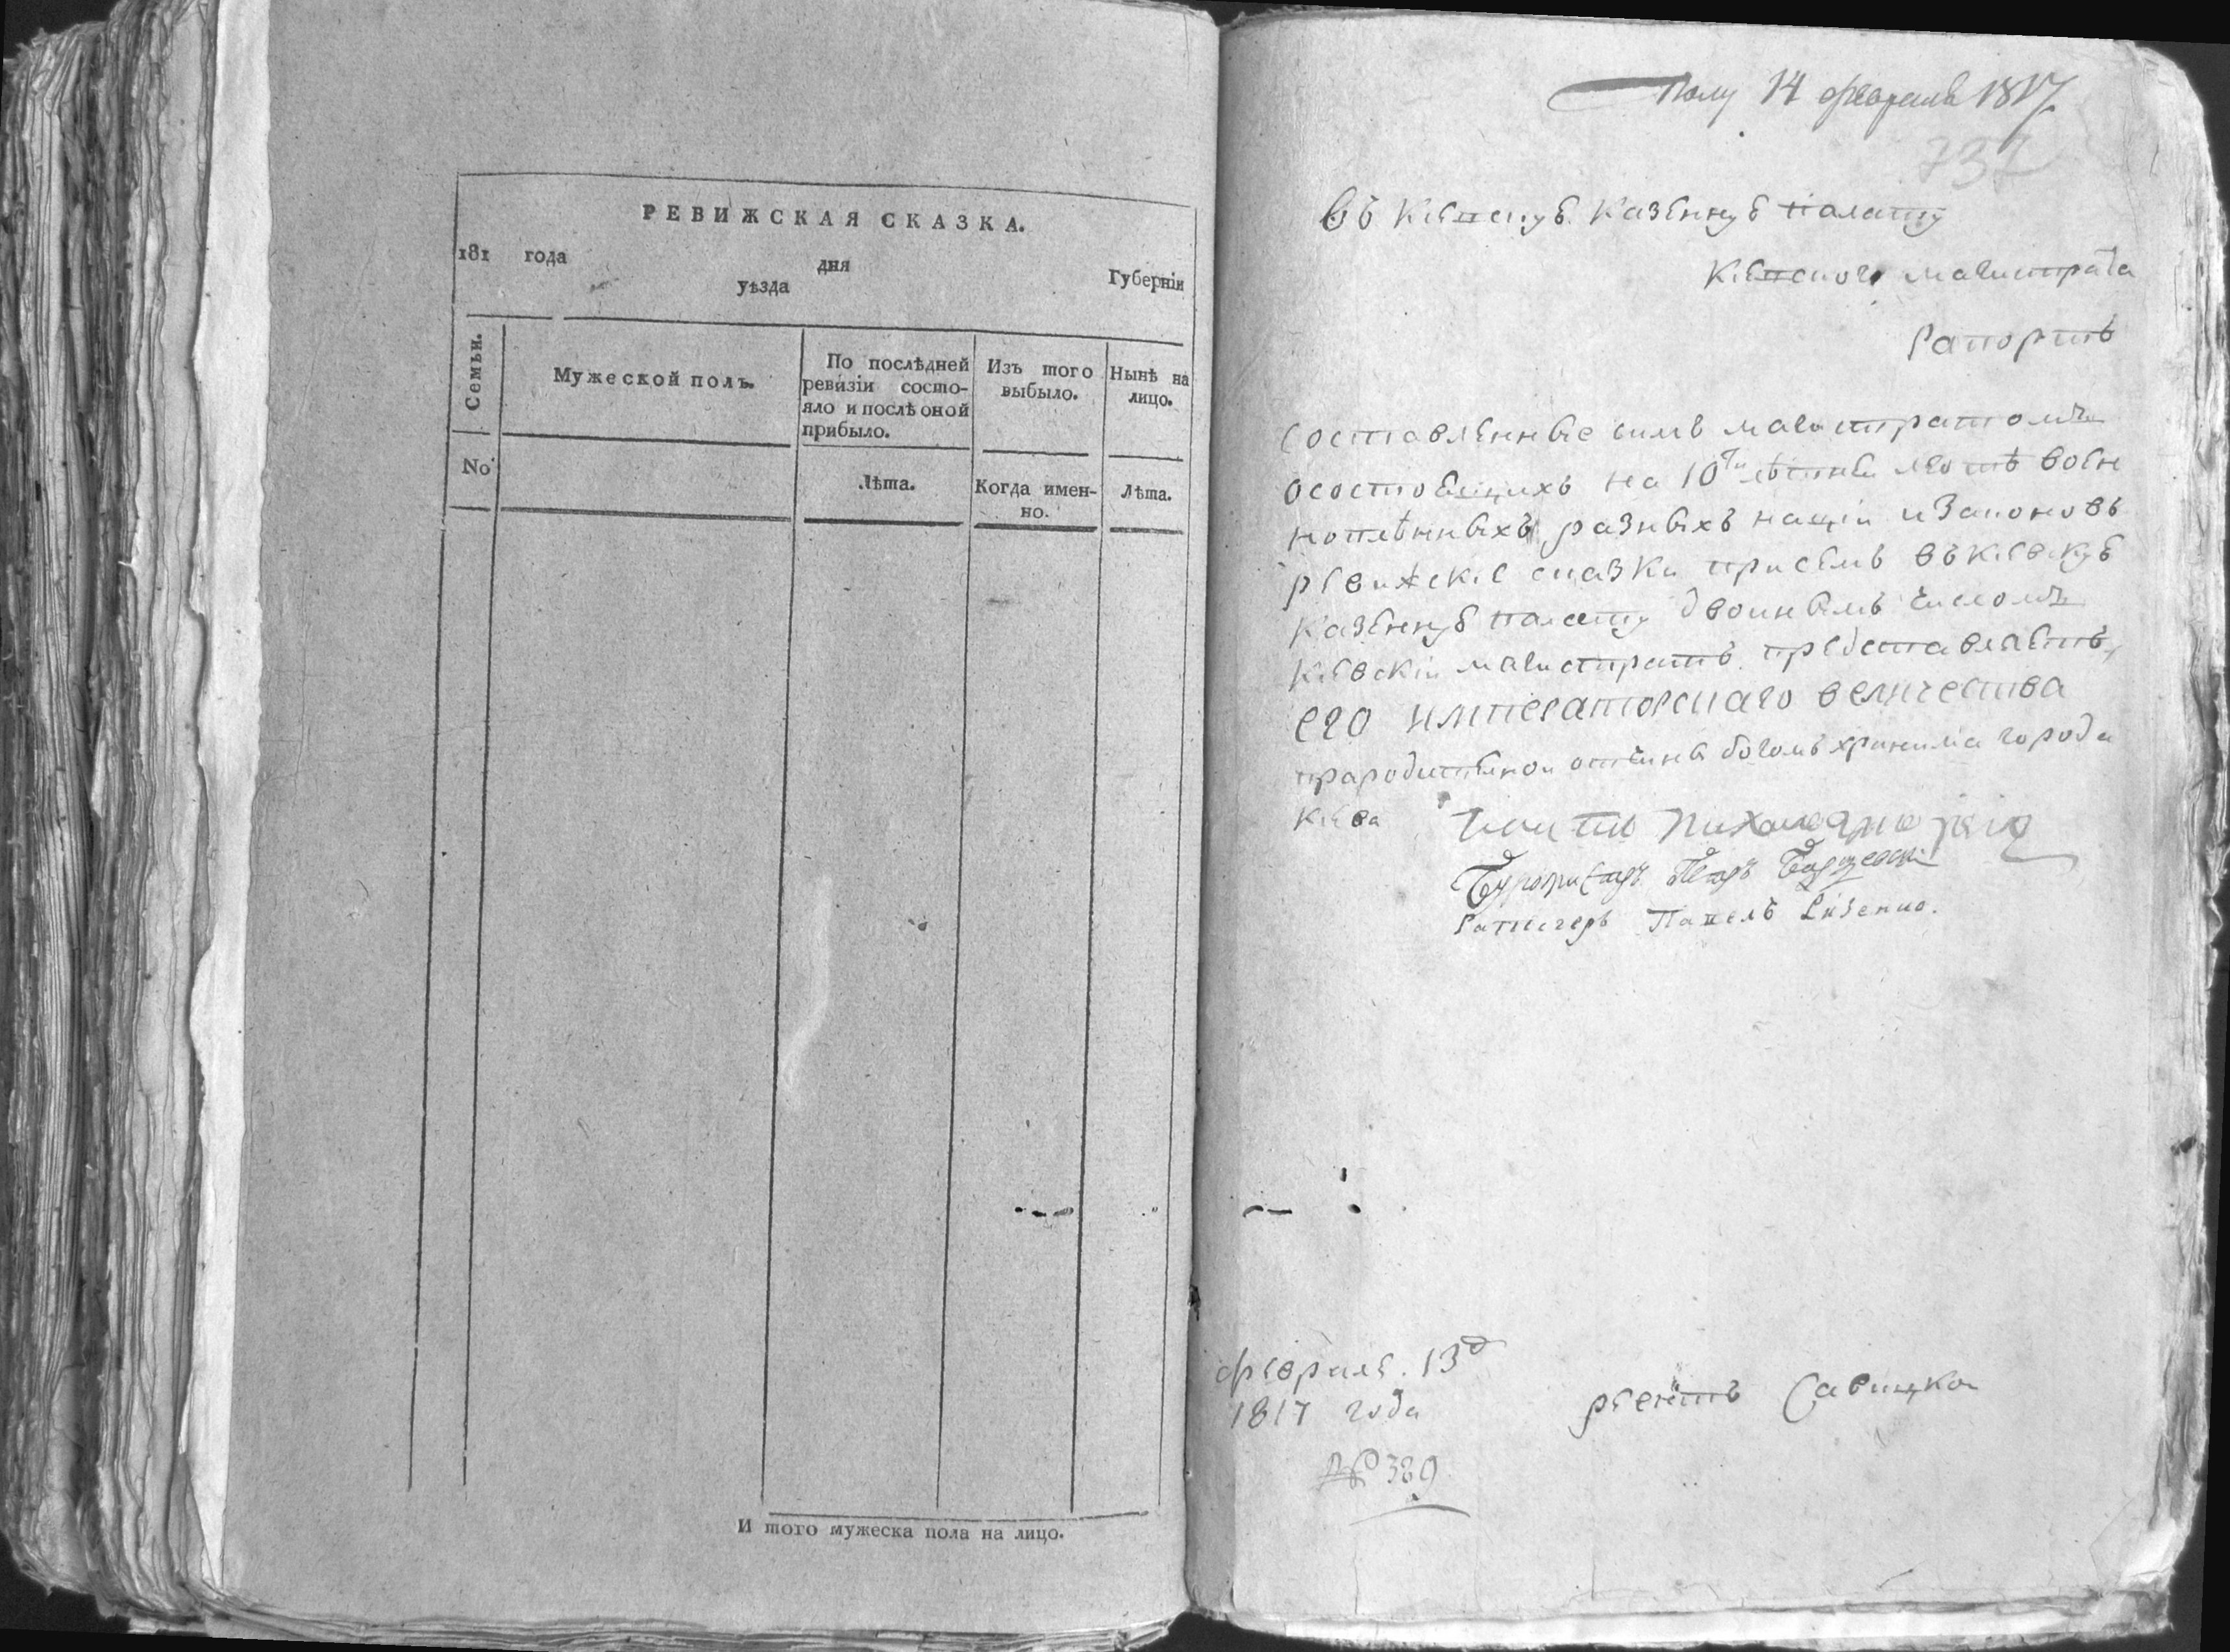 РЕВИЖСКАЯ СКАЗКА.
181 года дня
уѣзда Губерніи
Семьи.
Мужеской полъ.
По послѣдней
ревизіи состо-
яло и послѣ оной
прибыло.
Изъ того
выбыло.
Нынѣ на
лицо.
No
Лѣта.
Когда имен-
но.
Лѣта.
И того мужеска пола на лицо.
Полу 14 февраля 1817
737
Въ Кіевскую Казенную Палату
Кіевского магистрата
Рапортъ
Составленные симъ магистратомъ
о состоящихъ на 10ти лѣтней лготѣ воен
ноплѣнныхъ разныхъ націи и законовъ
ревижскіе сказки при семъ въ Кіевскую
Казенную палату двойнымъ числомъ
Кіевскій магистратъ представляетъ,
Его Императорскаго величества
прародителной отчины богомъ хранима города
Кіева
Бургомистръ Петръ
Ратсгеръ Павелъ
февраля. 13д
1817 года
регентъ Савицкой
№ 389